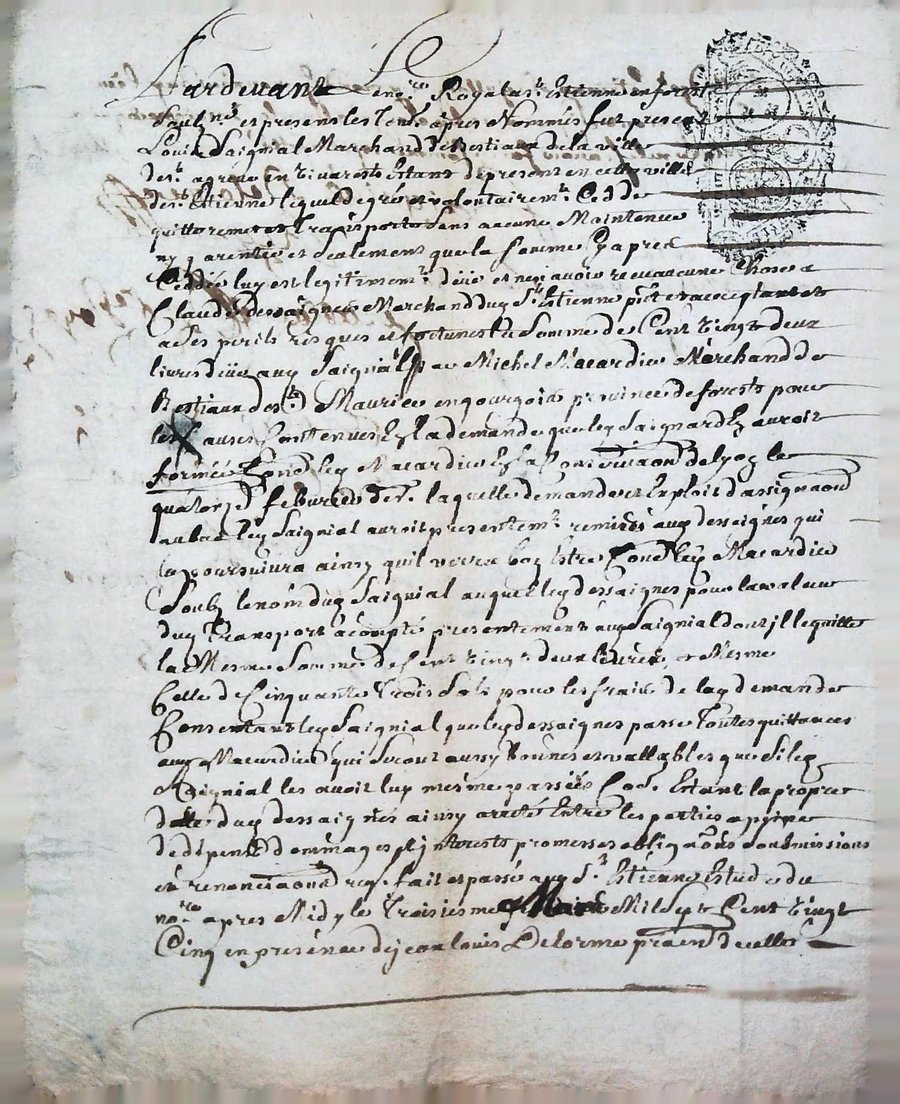 Pardevant Le no.re Royal a S.t Estienne en forest
soubz.né et presens les Temoins apres Nommés fut present
Louis Saignial Marchand de Bestiaux de la ville
de S.t agreve en vivarests Estant de present en cette ville
de S.t Estienne lequel de gré et volontairem.t Cedde
quitte remet et Transporte sans aucune Maintenue
ny garentie et seulement que la somme Cy apres
Ceddée luy est legitimem.t düe et ney avoir receu aucune Chose a
Claude dessaignes Marchand dud S.t Estienne p.nt et acceptant et
a Ses perils risques et fortunes La Somme de Cent vingt deux
livres düe aud Saignial par Michel Macardier Marchand de
Bestiaux de S.t Maurice en gourgois province de forests pour
les Causes Contenues En la demande que led Saignard En auroit
formée Contre led Macardier En la Conservation de Lyon le
quatorze febvrier der.r laquelle demande et Exploit d'assignaon
au bas led Saignial auroit presentem.t remises aud dessaignes qui
la poursuivra ainsy quil verra bon Estre Contre led Macardier
Soubz le nom dud Saignial auquel led dessaignes pour la valeur
dud Transport a compté presentement aud Saignial dont jl le quitte
la Mesme Somme de Cent vingt deux Livres, et Mesme
Celle de Cinquante Trois Sols pour les frais de lad demande
Consentant led Saignial que led dessaignes passe Toutes quittances
aud Macardier qui Seront aussy bonnes et vallables que Si led
Saignial les avoit luy mesme passées Estant la propre
dette dud dessaignes ainsy arreté Entre les parties a peine
de dépens dommages et jnterests promesses obligaons Soubmissions
et renonciaons req. fait et passé aud S.t Estienne Estude du
no.re apres Midy le Troisieme Mars Mil Sept Cent vingt
Cinq en présence de jean Louis Delorme praticien de cette